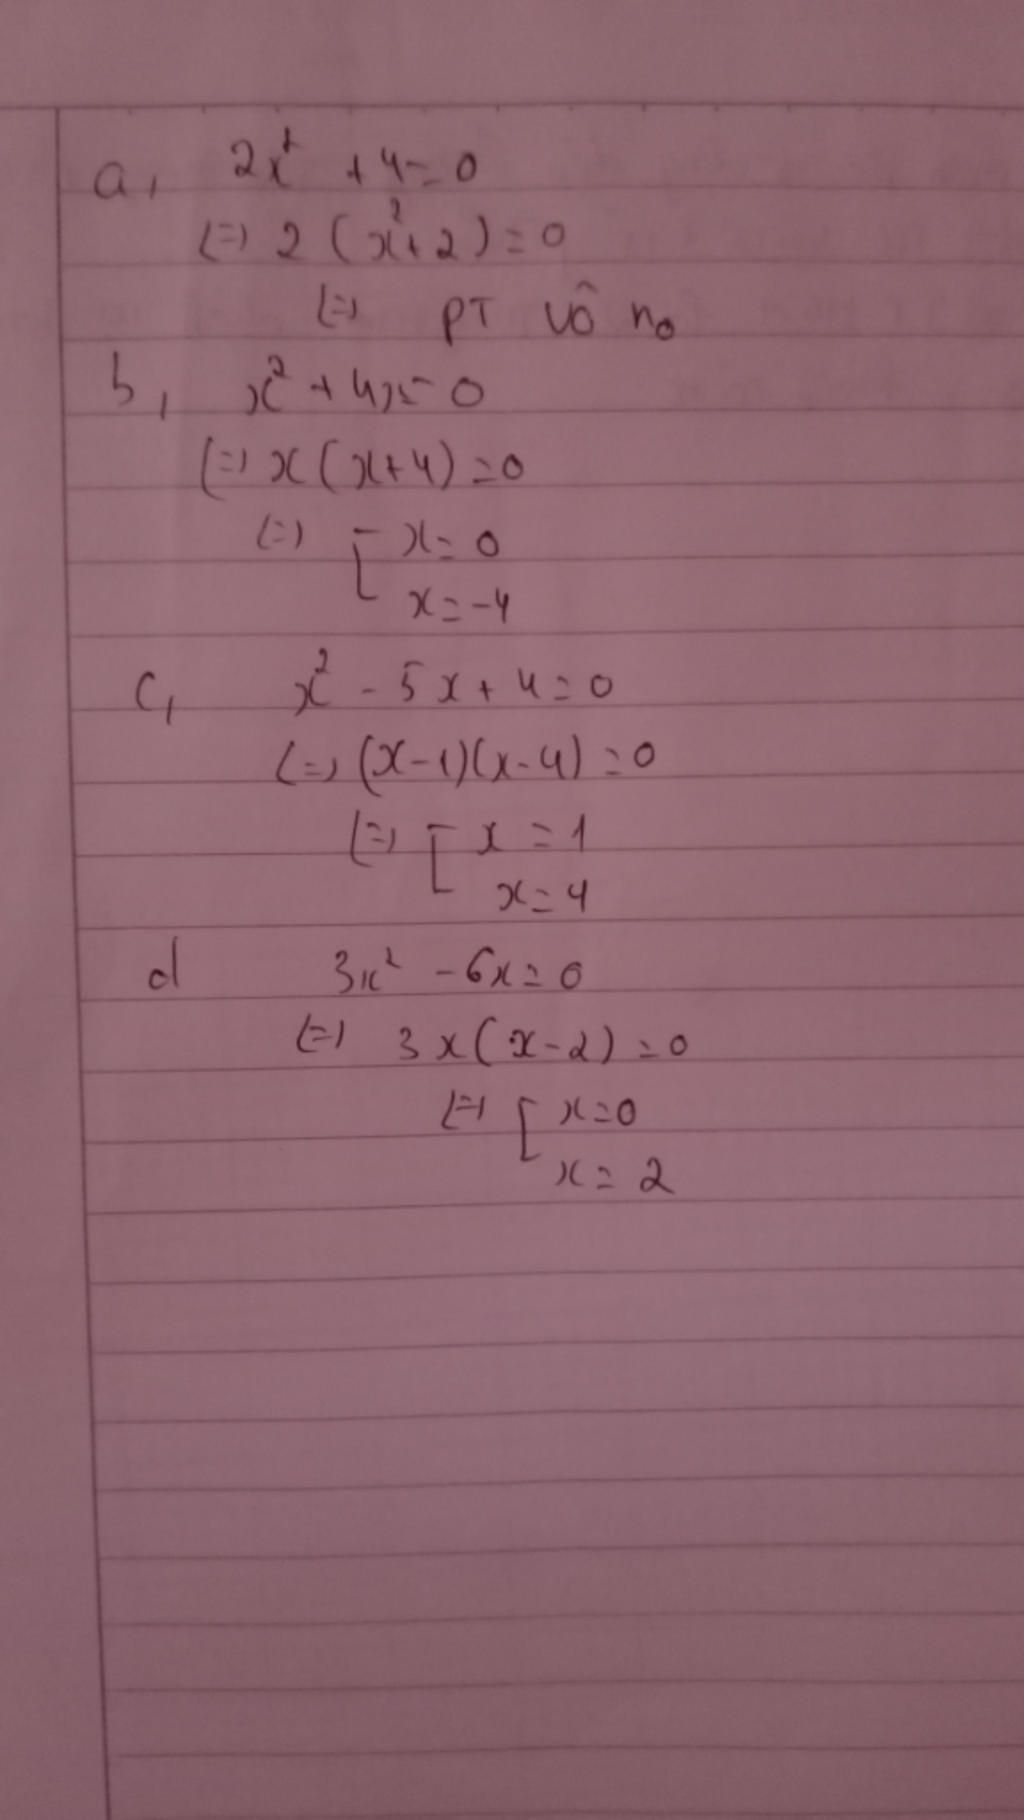 a, 2x² + 4 = 0
(=) 2 (x² + 2) = 0
(=) PT vô no
b, x² + 4x = 0
(=) x (x + 4) = 0
(=) [ x = 0
x = -4
c, x² - 5x + 4 = 0
(=) (x - 1)(x - 4) = 0
(=) [ x = 1
x = 4
d 3x² - 6x = 0
(=) 3x (x - 2) = 0
(=) [ x = 0
x = 2